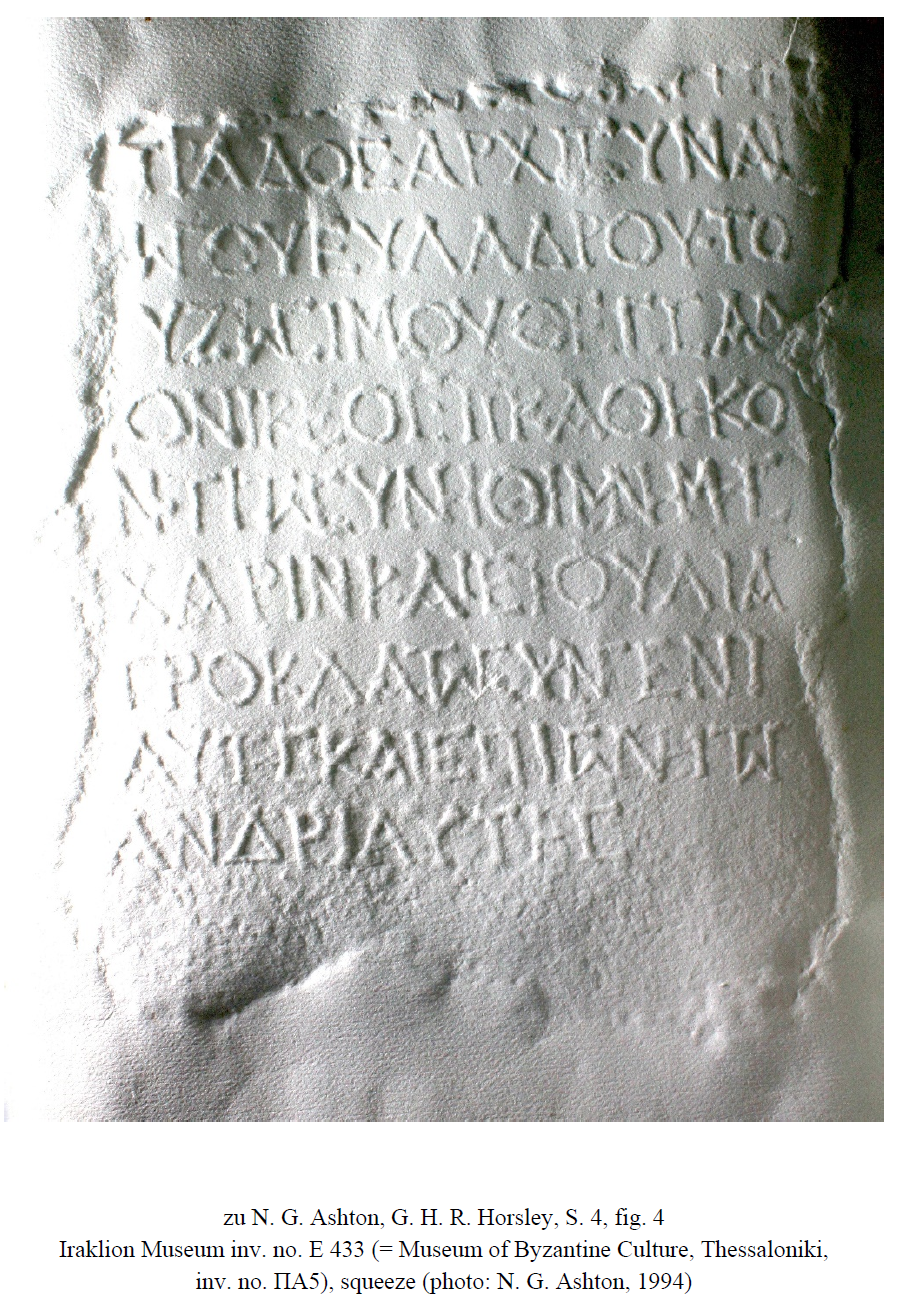 ΠΑΔΟΣΑΡΧΙΣΥΝΑΓ
ΩΓΟΥΕΥΛΑΔΡΟΥΤΟ
ΥΖΩΣΙΜΟΥΘΕΣΣΑΛ
ΟΝΙΚΕΟΣΕΠΙΚΑΘΗΚΟ
ΝΤΙΤΩΣΥΝΗΘΙΜΝΗΜΗΣ
ΧΑΡΙΝΚΑΙΕΙΟΥΛΙΑ
ΠΡΟΚΛΑΤΩΣΥΝΓΕΝΙ
ΑΥΤΗΣΚΑΙΕΠΙΩΝΗΤΩ
ΑΝΔΡΙΑΥΤΗΣ
zu N. G. Ashton, G. H. R. Horsley, S. 4, fig. 4
Iraklion Museum inv. no. E 433 (= Museum of Byzantine Culture, Thessaloniki,
inv. no. ΠΑ5), squeeze (photo: N. G. Ashton, 1994)